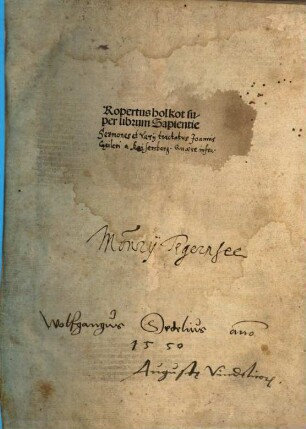 Ropertus holkot su-
per librum Sapientie
Sermones et varij tractatus Joannis
Geileri a
Monrij Tegernsee
Wolfgangus Sedelius ano
1550
Auguste Vindelicorum